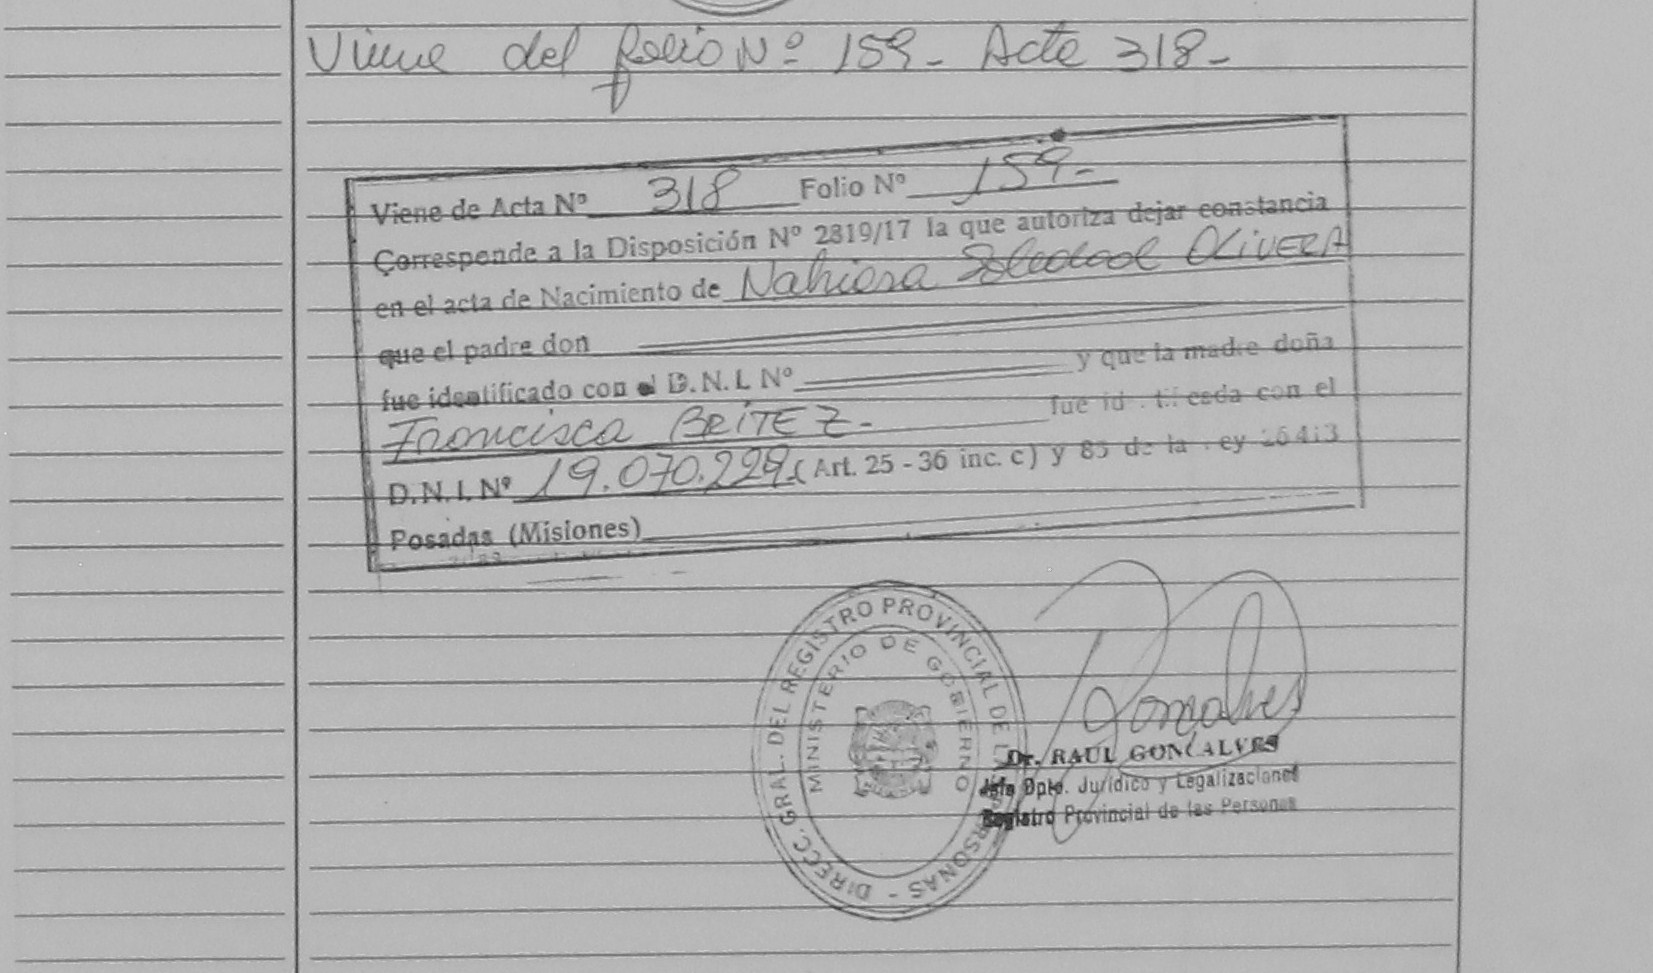 Viene del folio Nº 159- Acta 318-
Viene de Acta Nº 318 Folio Nº 159-
Corresponde a la Disposición Nº 2819/17 la que autoriza dejar constancia
en el acta de Nacimiento de Nahiara Soledad OLIVERA
que el padre don
fue identificado con el D.N.I. Nº y que la madre doña
Francisca BRÍTEZ- fue id . ti cada con el
D.N.I. Nº 19.070.229 (Art. 25 - 36 inc. c) y 85 de la ey 26413
Posadas (Misiones)
DIRECC. GRAL. DEL REGISTRO PROVINCIAL DE PERSONAS -
MINISTERIO DE GOBIERNO
Goncalves
Dr. RAUL GONCALVES
Jefe Dpto. Jurídico y Legalizaciones
Registro Provincial de las Personas